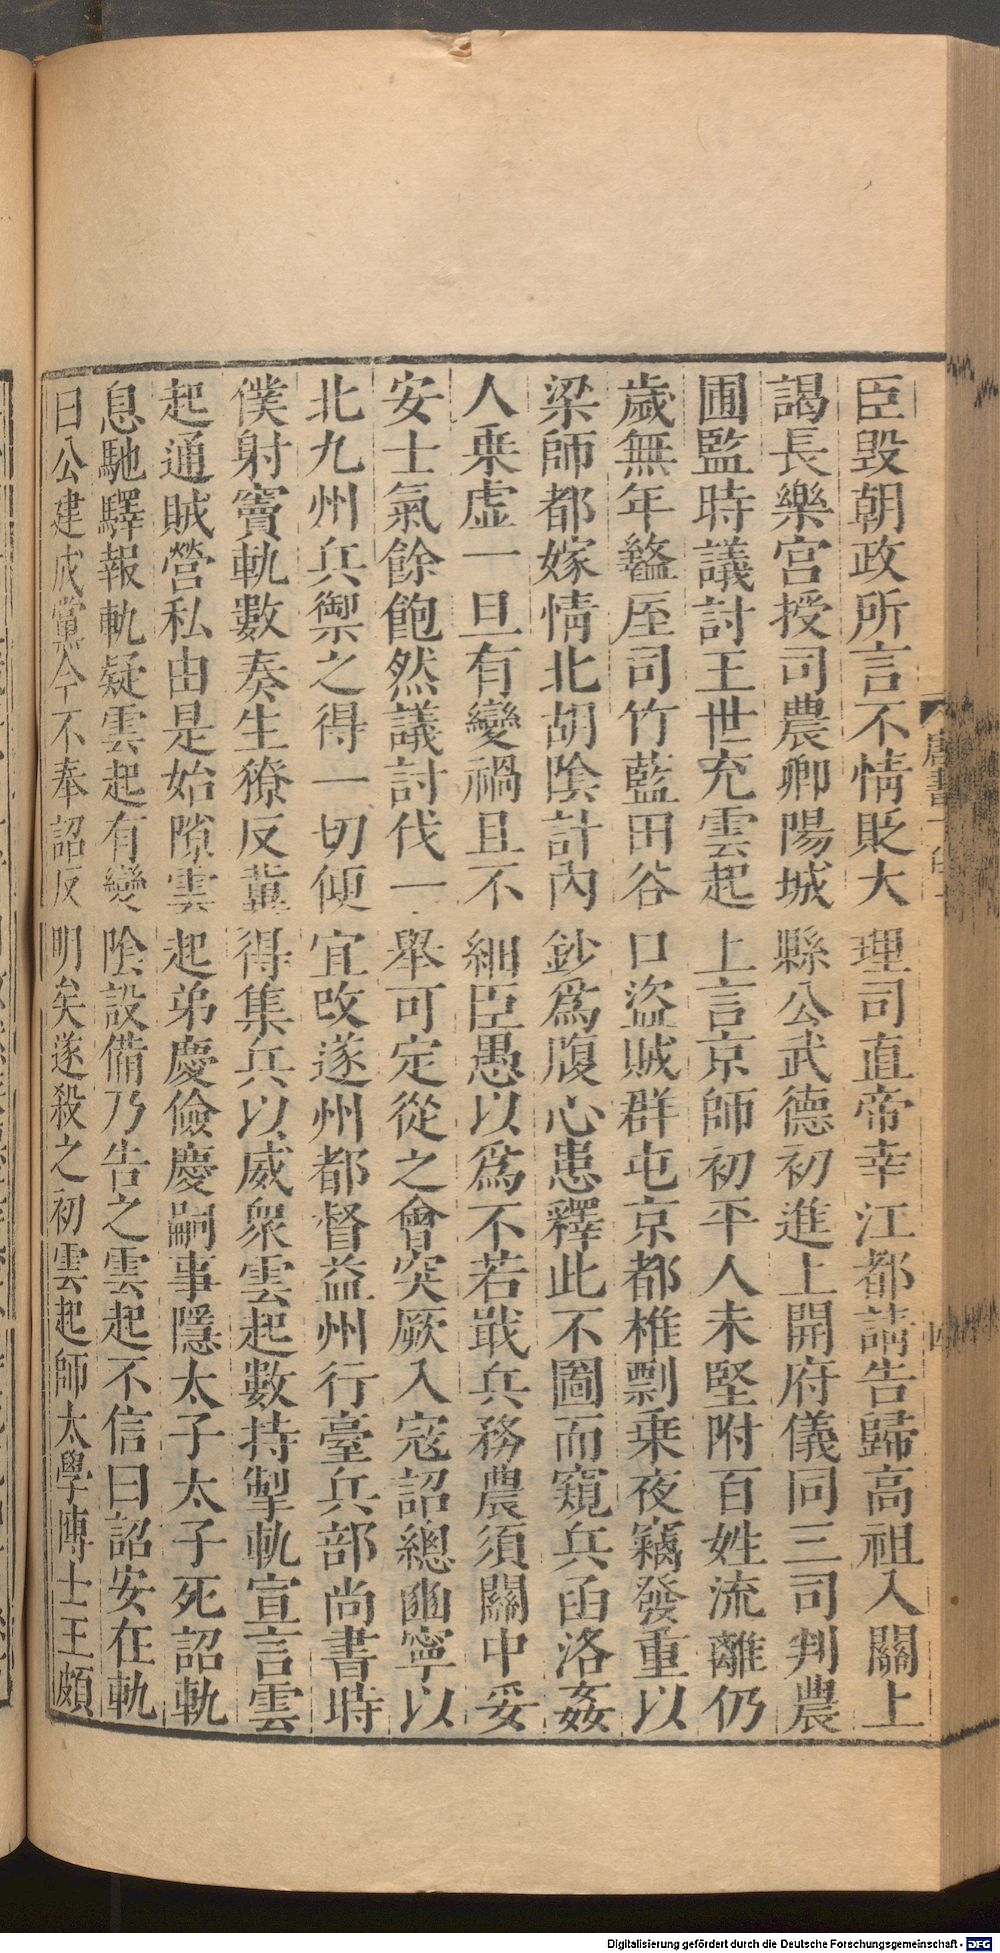 臣毀朝政所言不情貶大理司直帝幸江都請告歸高祖入關上
謁長樂宮授司農卿陽城縣公武德初進上開府儀同三司判農
圃監時議討王世充雲起上言京師初平人未堅附百姓流離仍
歲無年盩厔司竹藍田谷口盜賊群屯京都椎剽乗夜竊發重以
梁師都嫁情北胡陰計內鈔爲腹心患釋此不圖而窺兵函洛姦
人乗虛一旦有變禍且不細臣愚以爲不若戢兵務農須關中妥
安士氣餘飽然議討伐一舉可定從之會突厥入寇詔總豳寧以
北九州兵禦之得一切便宜改遂州都督益州行臺兵部尚書時
僕射竇軌數奏生獠反冀得集兵以威衆雲起數持掣軌宣言雲
起通賊營私由是始隙雲起弟慶儉慶嗣事隱太子太子死詔軌
息馳驛報軌疑雲起有變陰設備乃告之雲起不信曰詔安在軌
曰公建成黨今不奉詔反明矣遂殺之初雲起師太學博士王頗
唐書
四
Digitalisierung gefördert durch die Deutsche Forschungsgemeinschaft - DFG